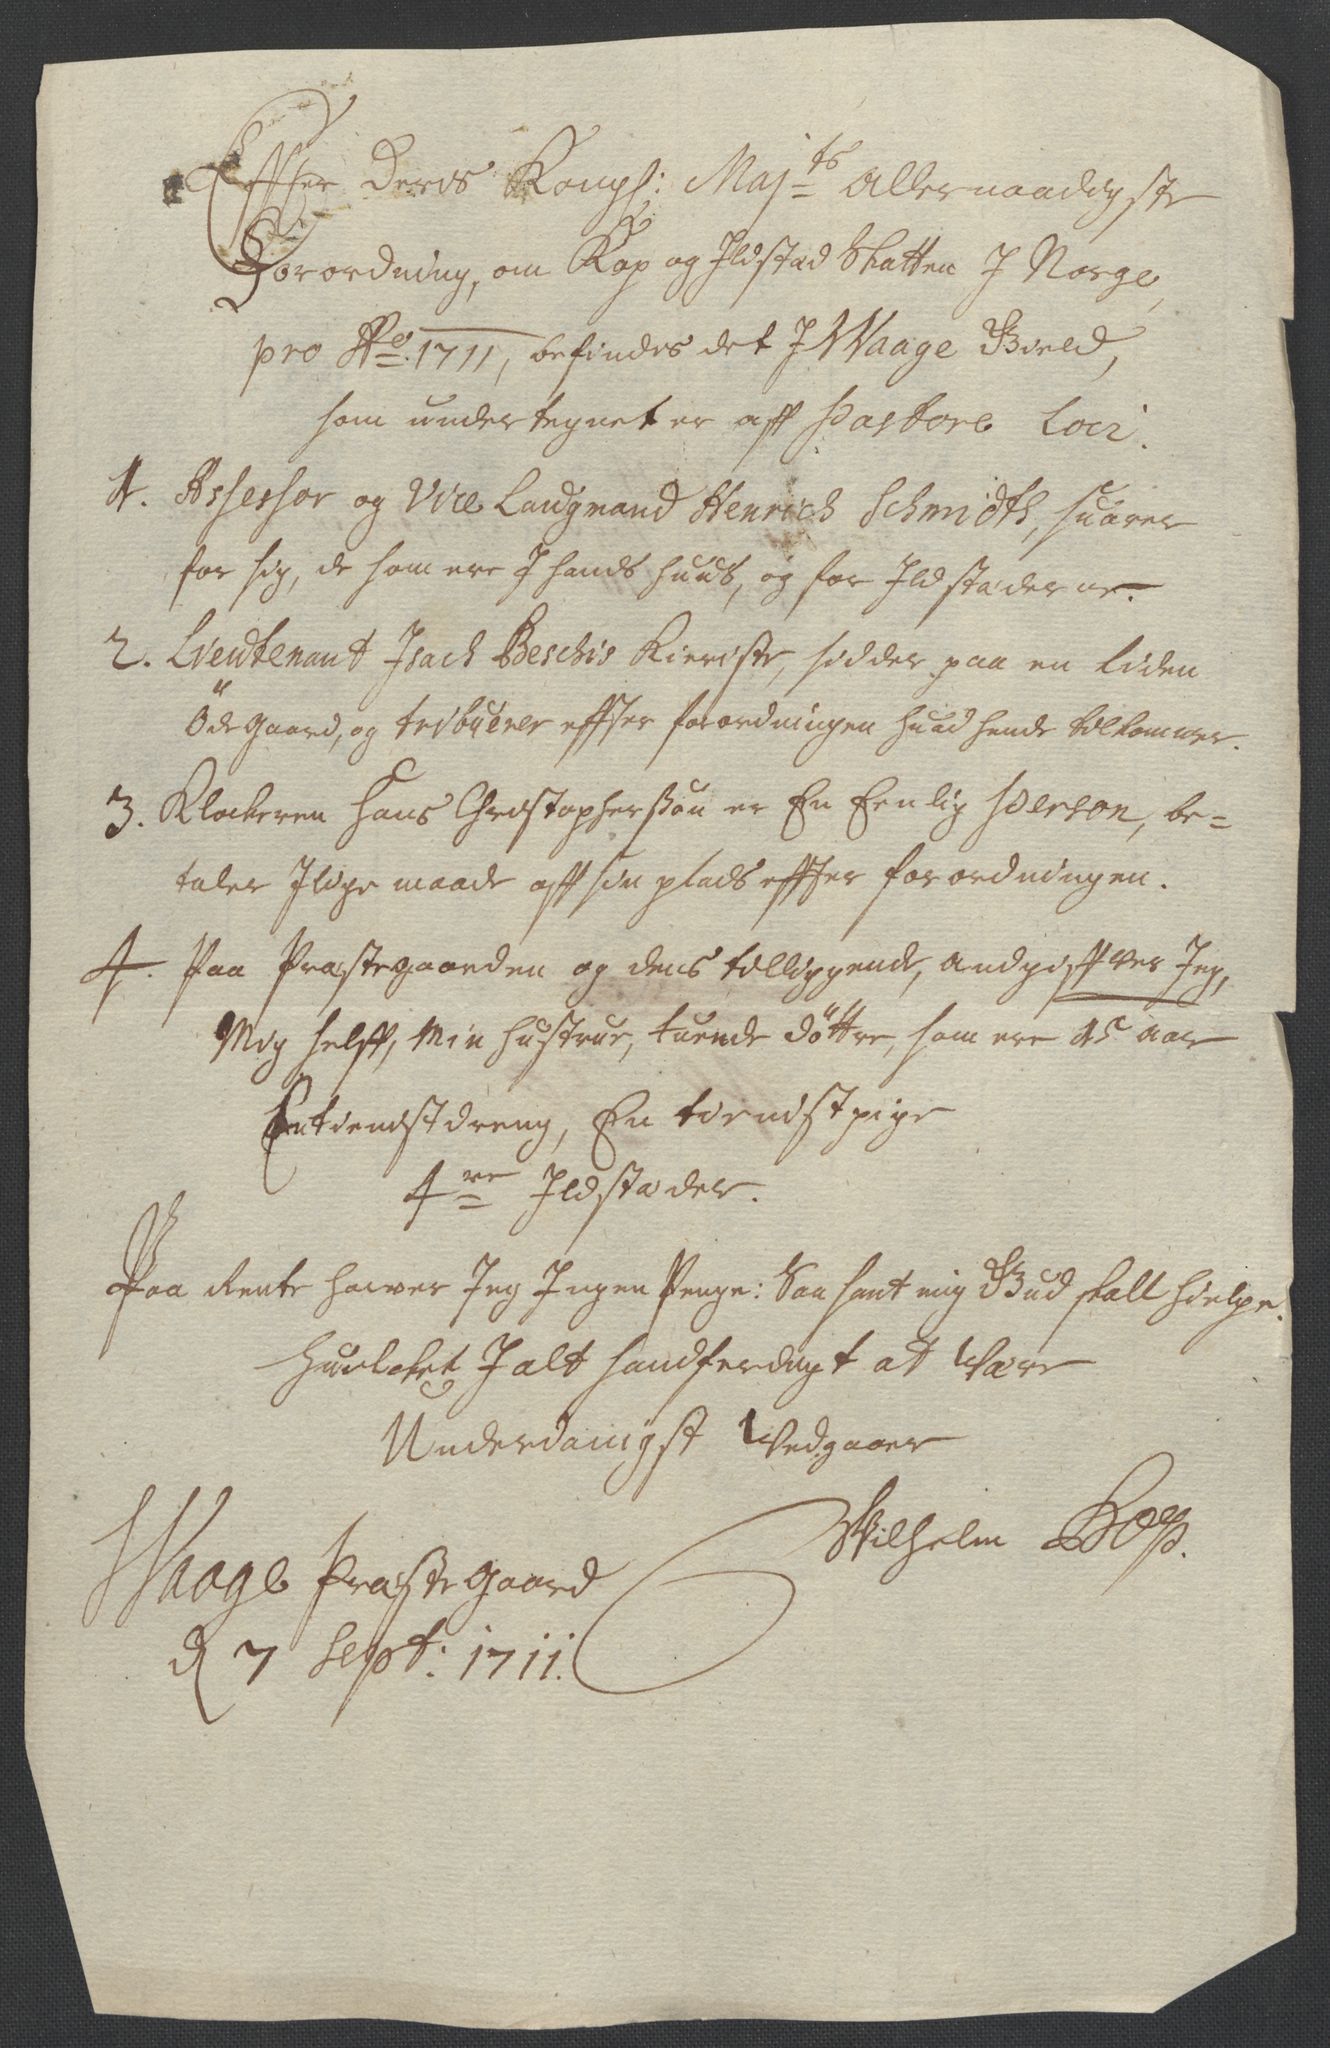 Effter Deris Kongl: Maj:ts Allernaadigste
Forordning, om Kop og Ildstad Skatten J Norge,
pro Ao. 1711, befindes det J Waage Gield,
som undertegnet er aff Pastore Loci.
1. Assessor og Vice Laugmand Henrich Schmidth, suarer
for sig, de som ere J hands huus, og for Ildstæderne.
2. Lieutenant Isach Beschis Kieriste, sidder paa en liden
Ödegaard, og tribuerer effter forordningen huad hende tilkommer.
3. Klockeren Hans Christophersøn er En Eenlig Person, be-
taler Jlige maade aff sin plads effter forordningen.
4. Paa Præstegaarden og dens tilliggende, andgiffver Jeg,
Mig selff, Min hustrue, tuende döttre, som ere 15 aar
En tienistdreng, En tienistpige
4re Ildstæder.
Paa Rente haver Jeg Ingen Penge: Saa sant mig Gud skall hielpe.
Huilcket J alt sandferdigt at være
Underdanigst Vedgaaer
Wilhelm Bosz.
Waage Præstegaard
d 7 Sept: 1711.